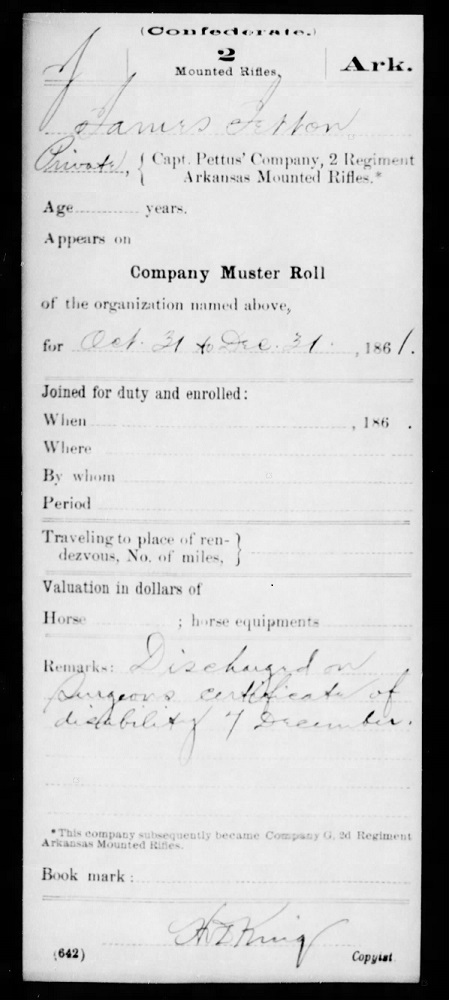 (Confederate.)
J 2 Ark.
Mounted Rifles.
James
Private, { Capt. Pettus' Company, 2 Regiment
Arkansas Mounted Rifles.*
Age years.
Appears on
Company Muster Roll
of the organization named above,
for Oct. 31 to Dec. 31. , 1861.
Joined for duty and enrolled:
When , 186 .
Where
By whom
Period
Traveling to place of ren- }
dezvous, No. of miles, }
Valuation in dollars of
Horse ; horse equipments
Remarks: Discharged on
Surgeons certificate of
disability 7 December.
*This company subsequently became Company G, 2d Regiment
Arkansas Mounted Rifles.
Book mark:
King
(642) Copyist.